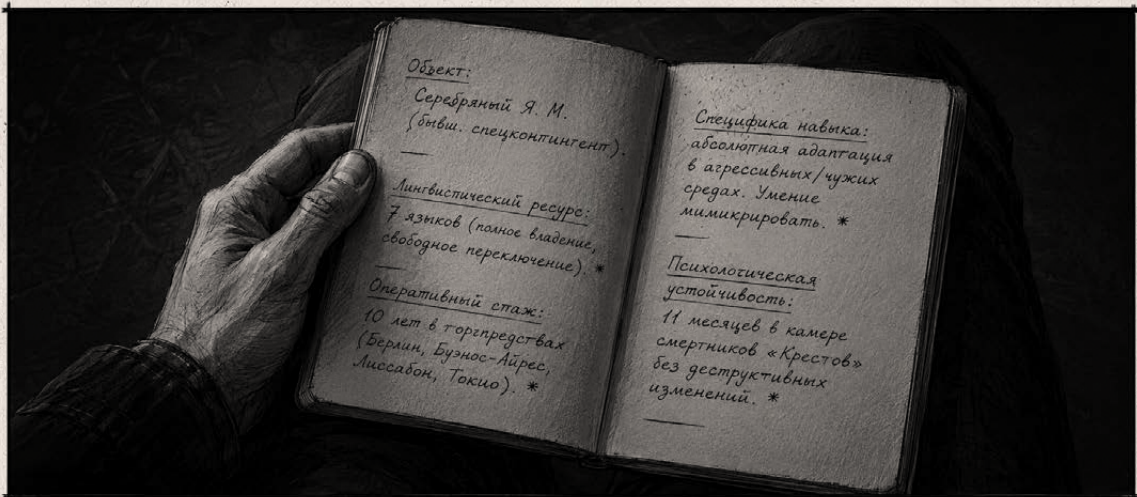 Объект:
Серебряный Я. М.
(бывш. спецконтингент).
Лингвистический ресурс:
7 языков (полное владение,
свободное переключение). *
Оперативный стаж:
10 лет в торгпредствах
(Берлин, Буэнос-Айрес,
Лиссабон, Токио). *
Специфика навыка:
абсолютная адаптация
в агрессивных/чужих
средах. Умение
мимикрировать. *
Психологическая
устойчивость:
11 месяцев в камере
смертников «Крестов»
без деструктивных
изменений. *